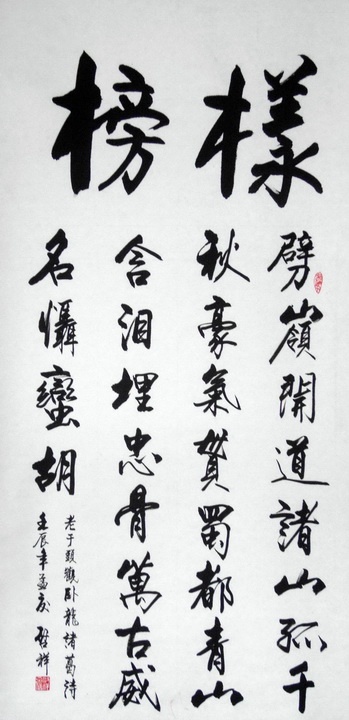 榜樣
劈嶺開道諸山孤千
秋豪氣貫蜀都青山
含泪埋忠骨萬古威
名懾蠻胡
老于觀卧龍諸葛詩
壬辰年孟夏 啓祥